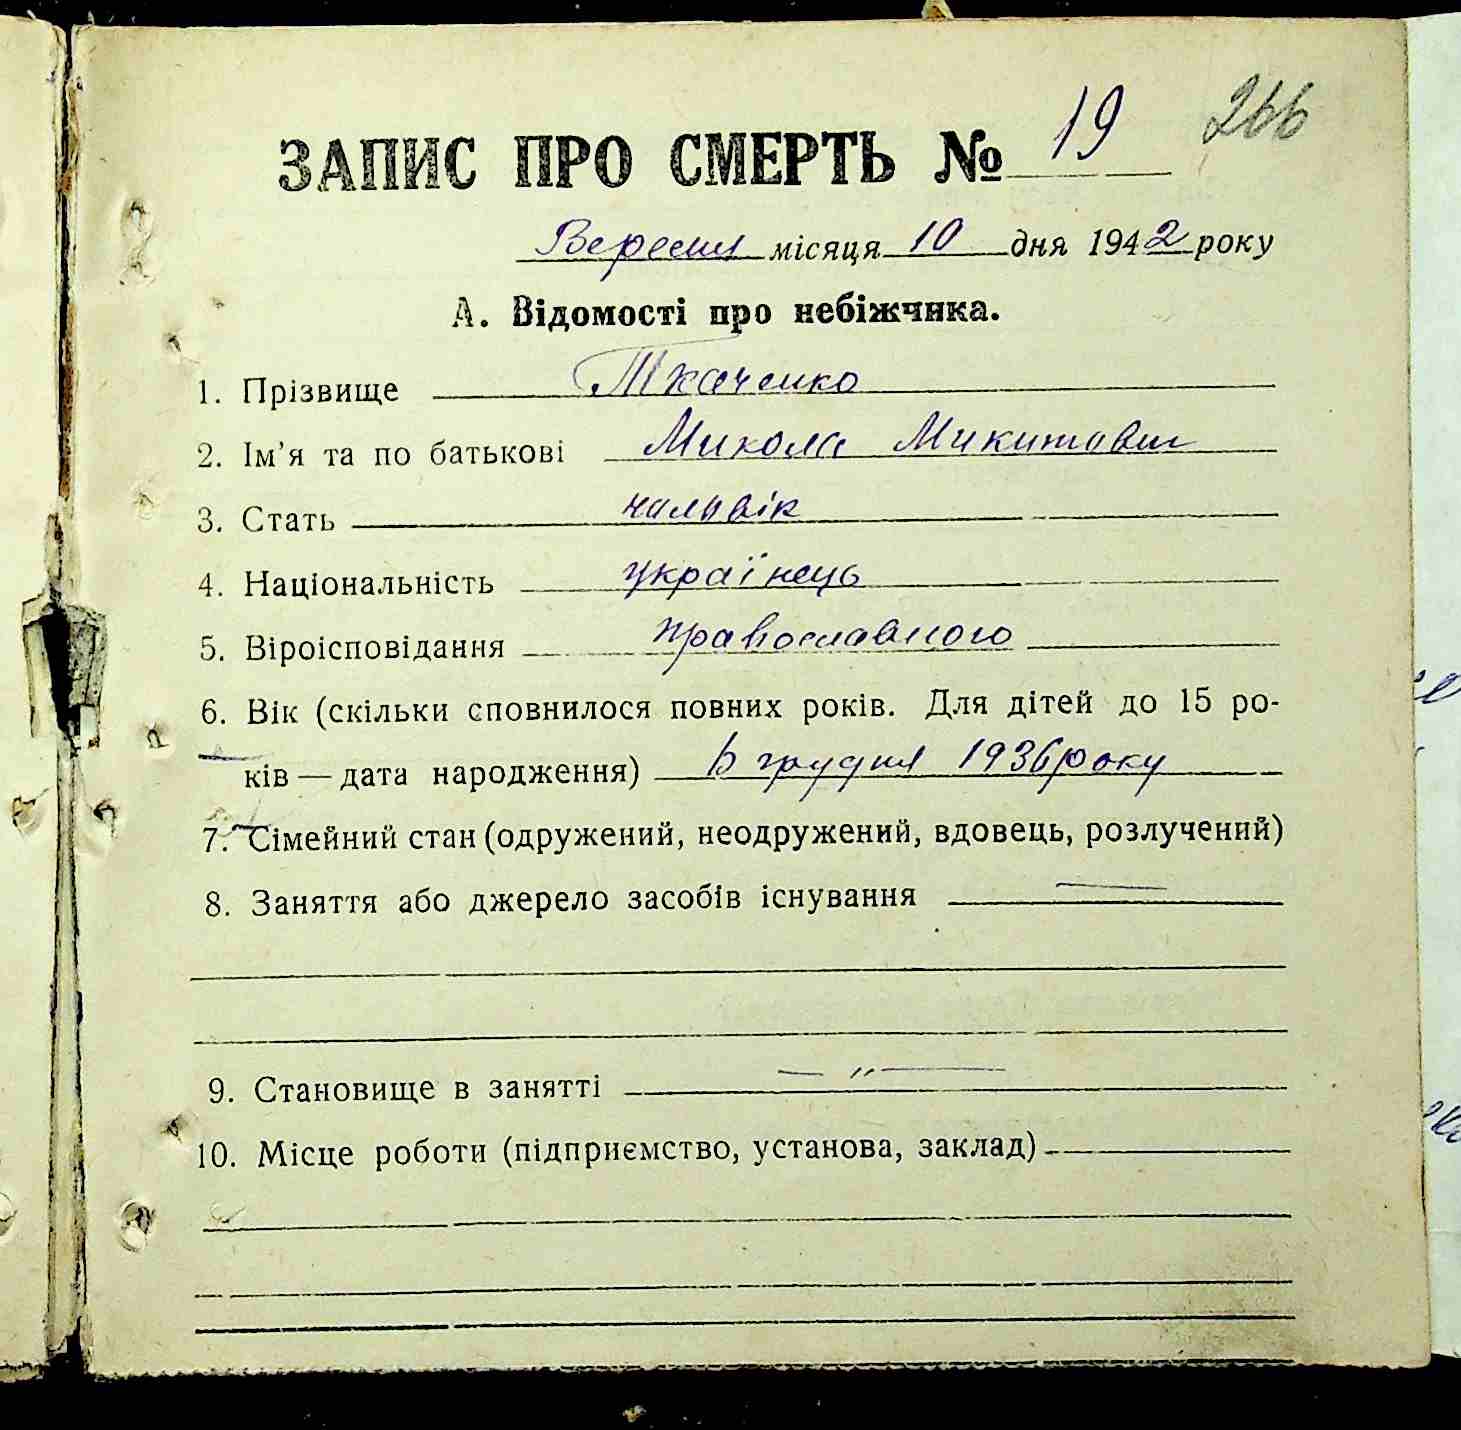 ЗАПИС ПРО СМЕРТЬ № 19 266
Вересня місяця 10 дня 1942 року
А. Відомості про небіжчика.
1. Прізвище Ткаченко
2. Ім'я та по батькові Микола Микитович
3. Стать чоловік
4. Національність українець
5. Віроісповідання православного
6. Вік (скільки сповнилося повних років. Для дітей до 15 ро-
ків — дата народження) грудня 1936 року
7. Сімейний стан (одружений, неодружений, вдовець, розлучений)
8. Заняття або джерело засобів існування —
9. Становище в занятті — „ —
10. Місце роботи (підприємство, установа, заклад)